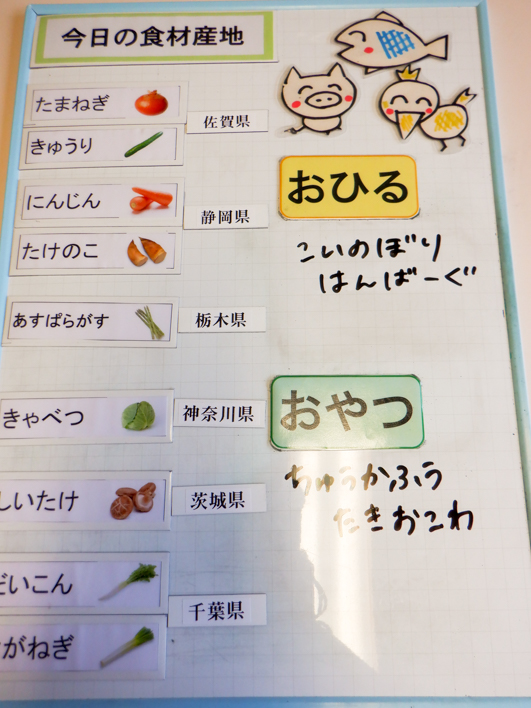 今日の食材産地
たまねぎ
きゅうり
佐賀県
にんじん
たけのこ
静岡県
あすぱらがす
栃木県
きゃべつ
神奈川県
しいたけ
茨城県
だいこん
ながねぎ
千葉県
おひる
こいのぼり
はんばーぐ
おやつ
ちゅうかふう
たきおこわ